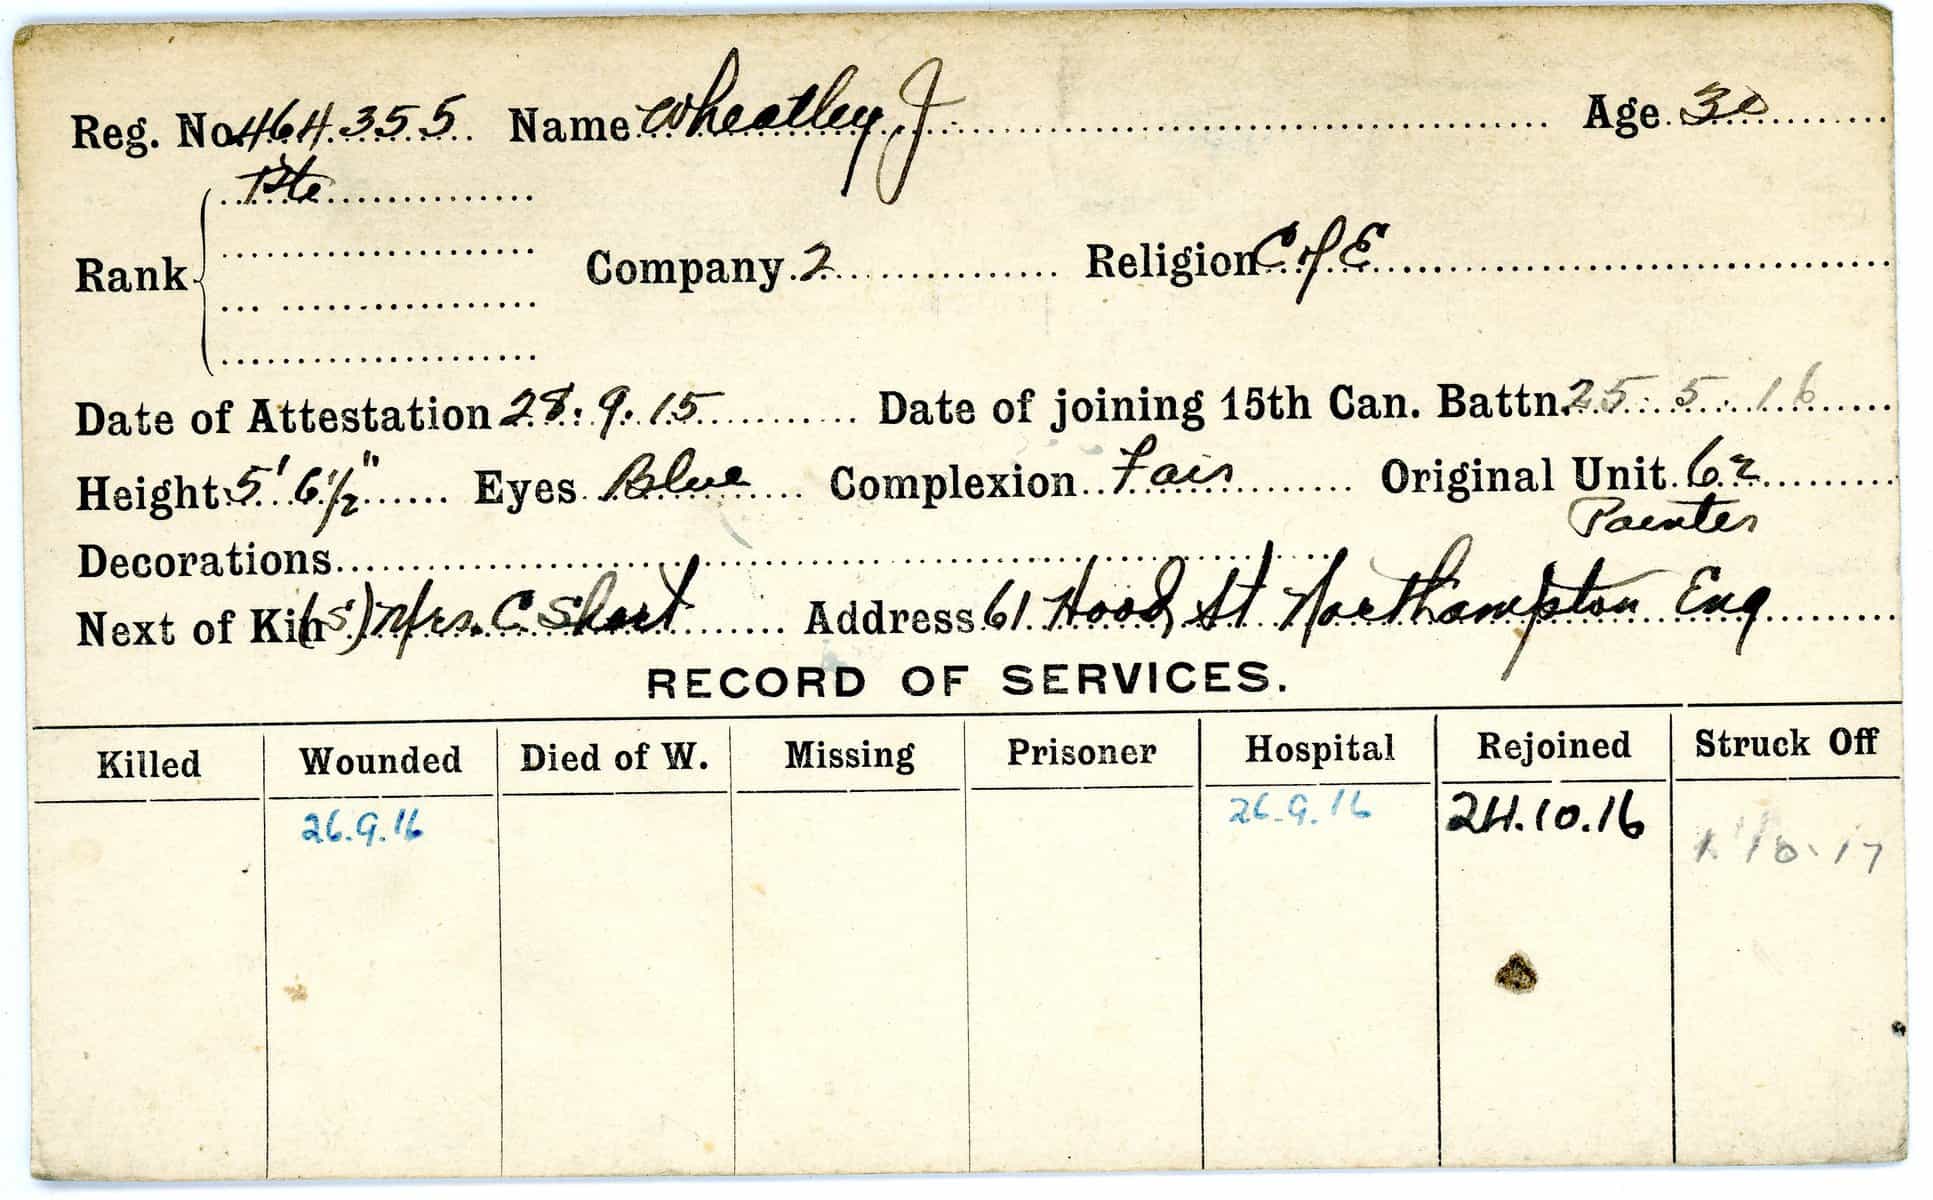 Reg. No. 464355 Name Wheatley J Age 30
Pte
Rank Company 2 Religion C of E
Date of Attestation 28.9.15 Date of joining 15th Can. Battn. 25.5.16
Height 5' 6½" Eyes Blue Complexion Fair Original Unit 62
Painter
Decorations
Next of Kin (S) Mrs. C Short Address 61 Hood St Northampton Eng
RECORD OF SERVICES.
Killed Wounded Died of W. Missing Prisoner Hospital Rejoined Struck Off
26.9.16 26.9.16 24.10.16
10.17